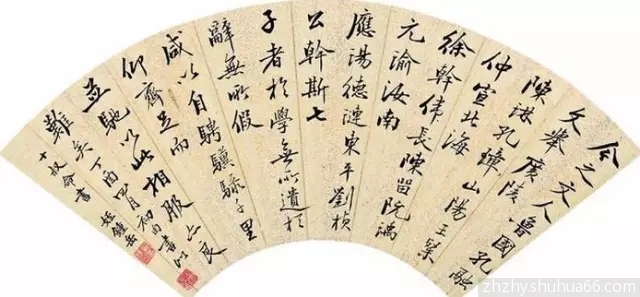 今之文人魯國孔融
文舉廣陵
陳琳孔璋山陽王粲
仲宣北海
徐幹偉長陳留阮瑀
元渝汝南
應湯德漣東平劉楨
公幹斯七
子者於學無所遺於
辭無所假
咸以自騁驥騄千里
仰齊足而
並馳以此相服亦良
難矣丁酉四月初
十叔命書 姪鍾岳
zhzhy.shuhua66.com